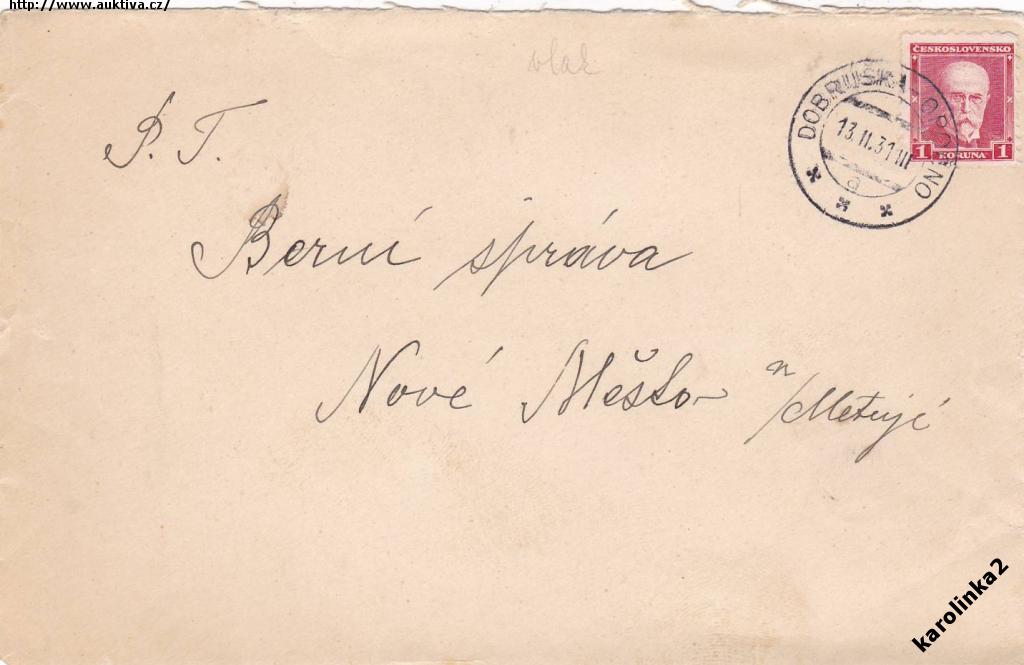 http://www.auktiva.cz/
vlak
ČESKOSLOVENSKO
1 KORUNA 1
DOBRUŠKA-OPOČNO
13.II.31 III
a
P. T.
Berní správa
Nové Město n/Metují
karolinka2